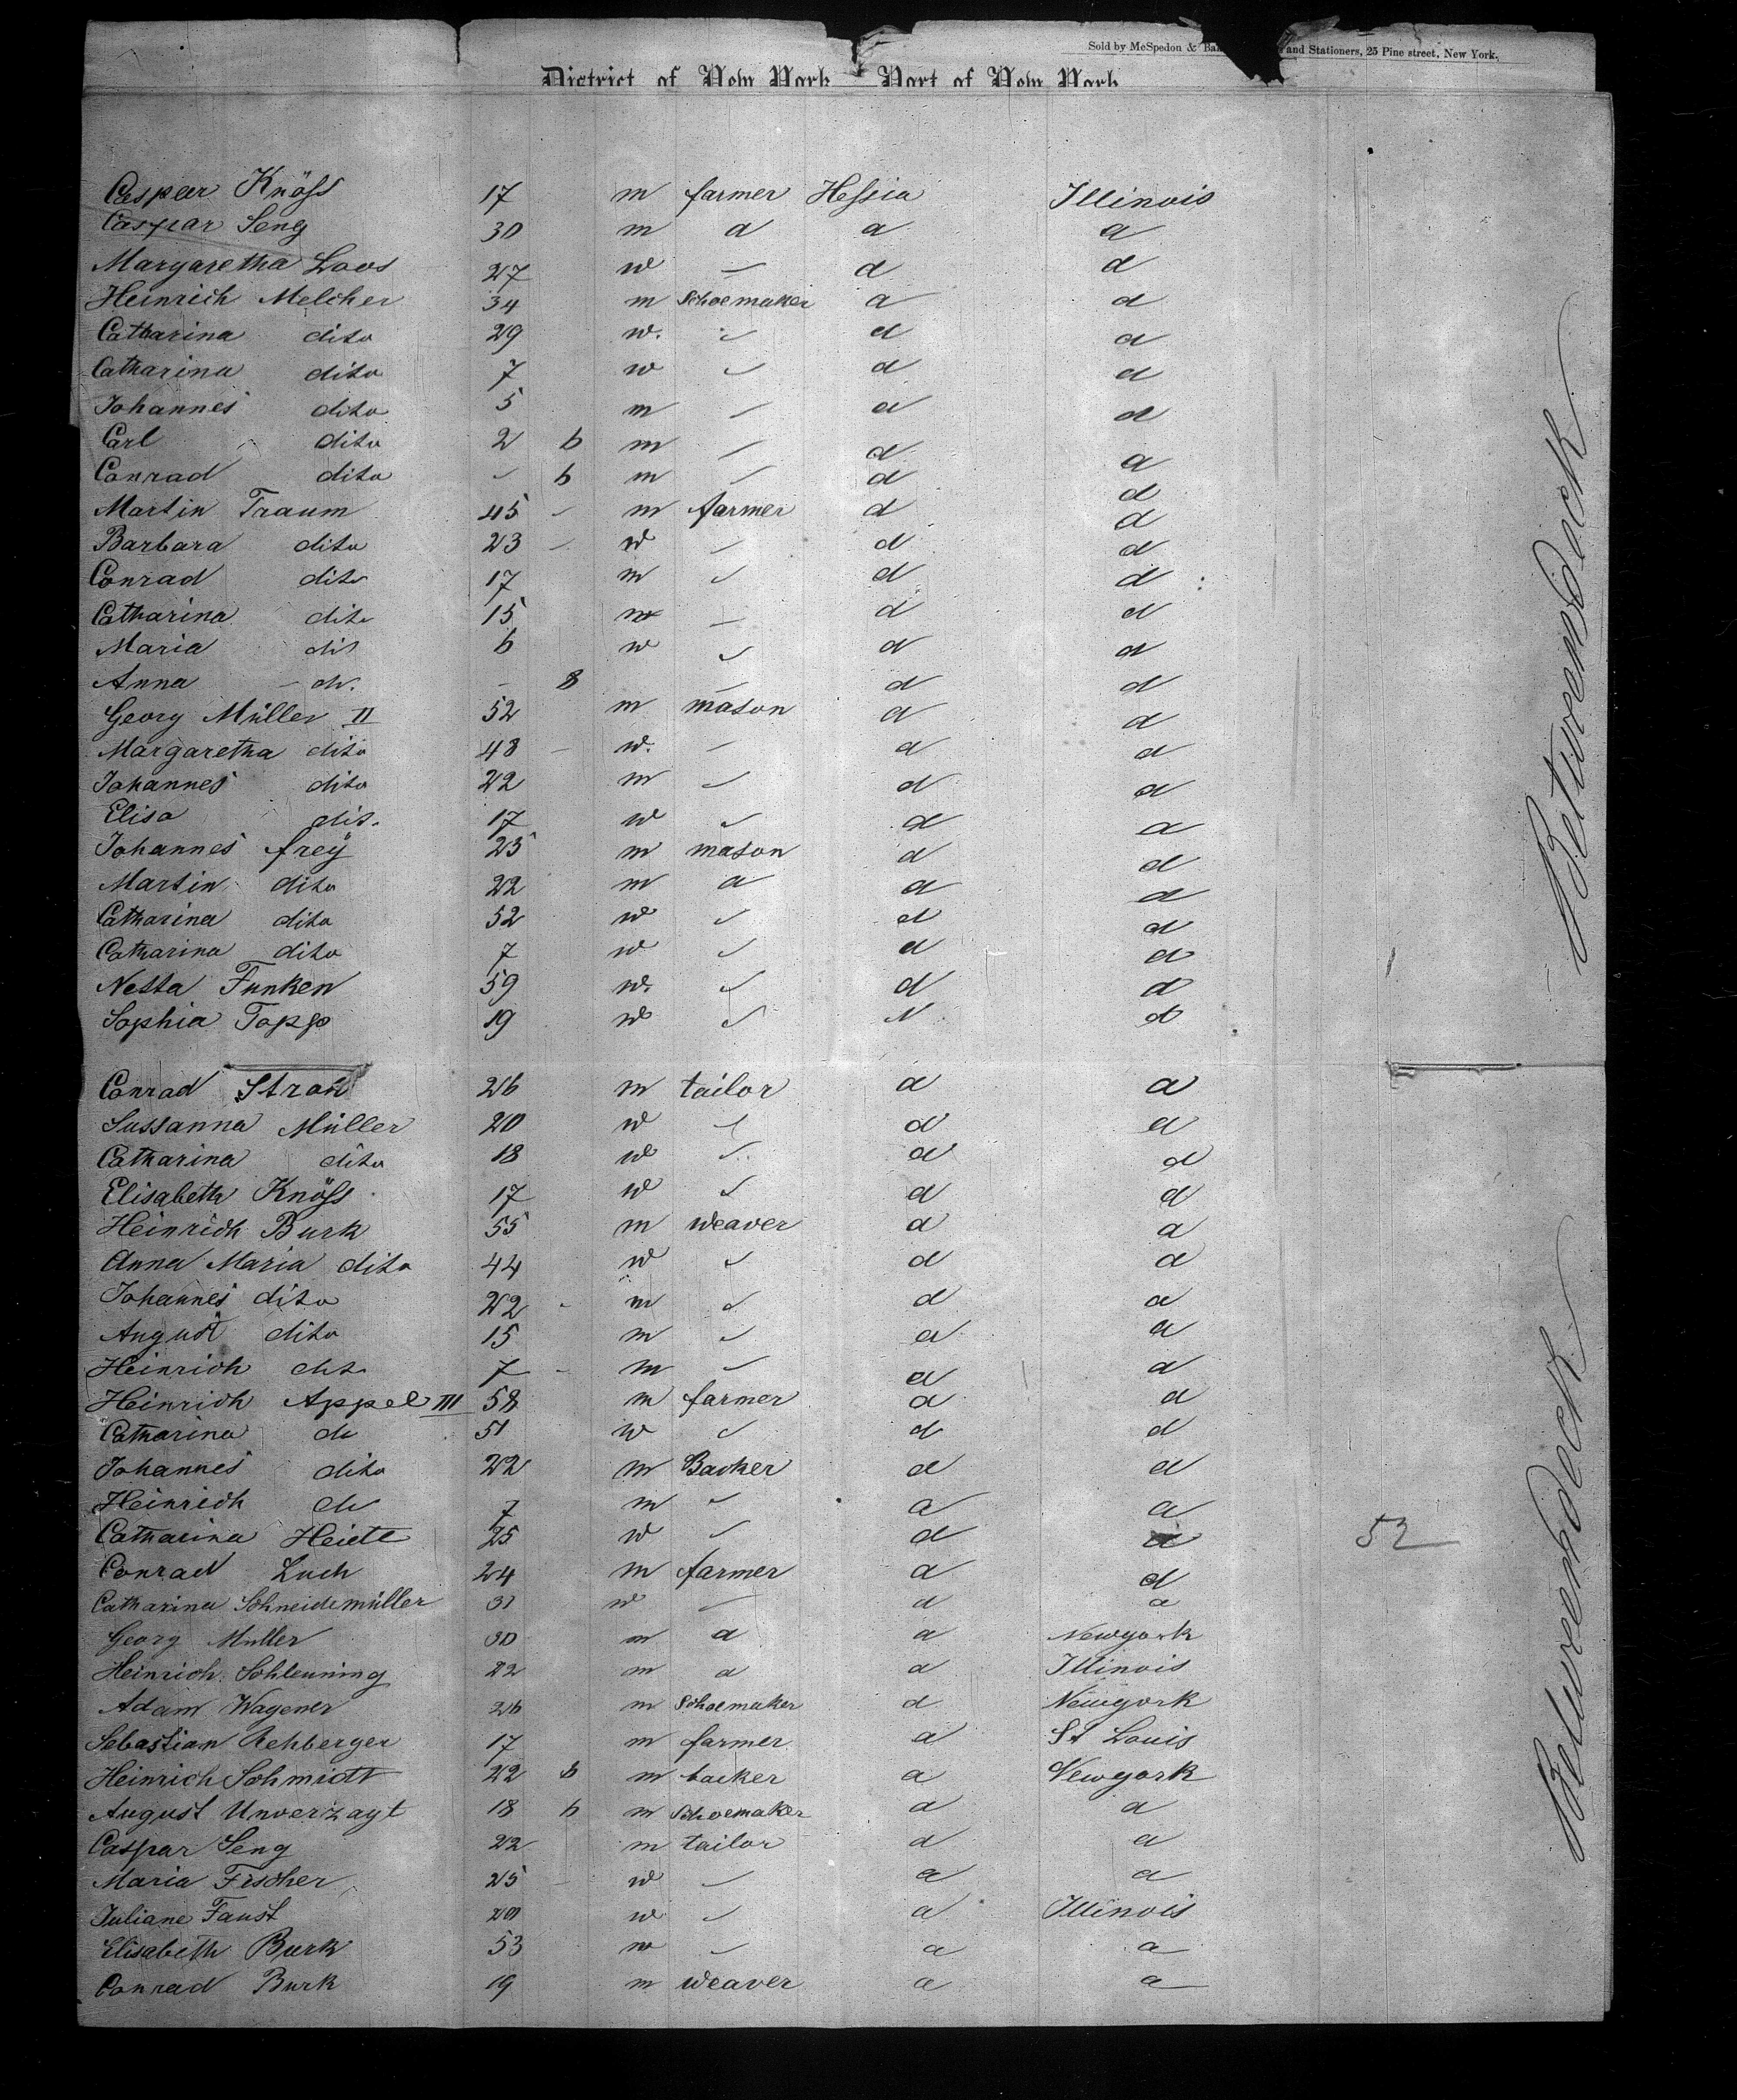 Sold by McSpedon & Ba and Stationers, 25 Pine street, New York.
District of New York Port of New York
Caspar Knöss 17 m farmer Hessia Illinois
Caspar Seng 30 m d d d
Margaretha Loos 27 w — d d
Heinrich Melcher 34 m Schoemaker d d
Catharina dito 29 w. — d d
Catharina dito 7 w — d d
Johannes dito 5 m — d d
Carl dito 2 6 m — d d
Conrad dito — 6 m — d d
Martin Traum 45 — m farmer d d
Barbara dito 23 — w — d d
Conrad dito 17 m — d d
Catharina dito 15 w — d d
Maria dit 6 w — d d
Anna — do. — 8 — d d
Georg Müller II 52 m mason d d
Margaretha dito 48 — w. — d d
Johannes dito 22 m — d d
Elisa dit. 17 w — d d
Johannes frey 25 m mason d d
Martin dito 22 m d d d
Catharina dito 52 w — d d
Catharina dito 7 w — d d
Netta Funken 59 w. — d d
Sophia Topp 19 w — d
Conrad Stroh 26 m tailor d d
Sussanna Müller 20 w — d d
Catharina dito 18 w — d d
Elisabeth Knöss 17 w — d d
Heinrich Burk 55 m weaver d d
Anna Maria dito 44 w — d d
Johannes dito 22 - m — d d
August dito 15 m — d d
Heinrich dito 7 - m — d d
Heinrich Appel III 58 m farmer d d
Catharina do 51 w — d d
Johannes dito 22 m Backer d d
Heinrich do 7 m — d d
Catharina Heidt 25 w — d d 52
Conrad Luch 24 m farmer d d
Catharina Schneidemüller 31 w — d d
Georg Muller 30 m d d Newyork
Heinrich Schleuning 22 m d d Illinois
Adam Wagener 26 m Schoemaker d Newyork
Sebastian Rehberger 17 m farmer d St Louis
Heinrich Schmidt 22 6 m backer d Newyork
August Unverzagt 18 6 m Schoemaker d d
Caspar Seng 22 m tailor d d
Maria Fischer 25 — w — d d
Juliane Faust w — d Illinois
Elisabeth Burk 53 w — d d
Conrad Burk 19 m weaver d d
Betweendeck
Betweendeck